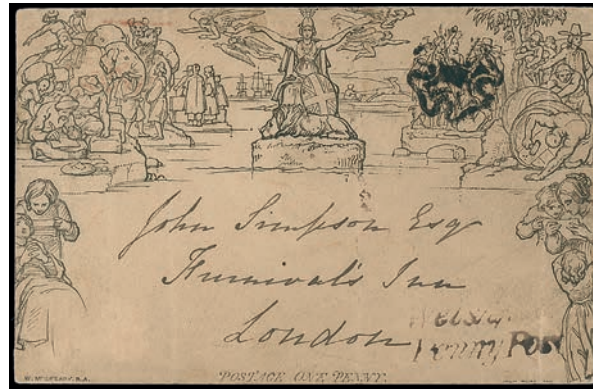 John Simpson Esq
Furnival's Inn
London
Penny Post
W. MULREADY, R.A.
POSTAGE ONE PENNY.